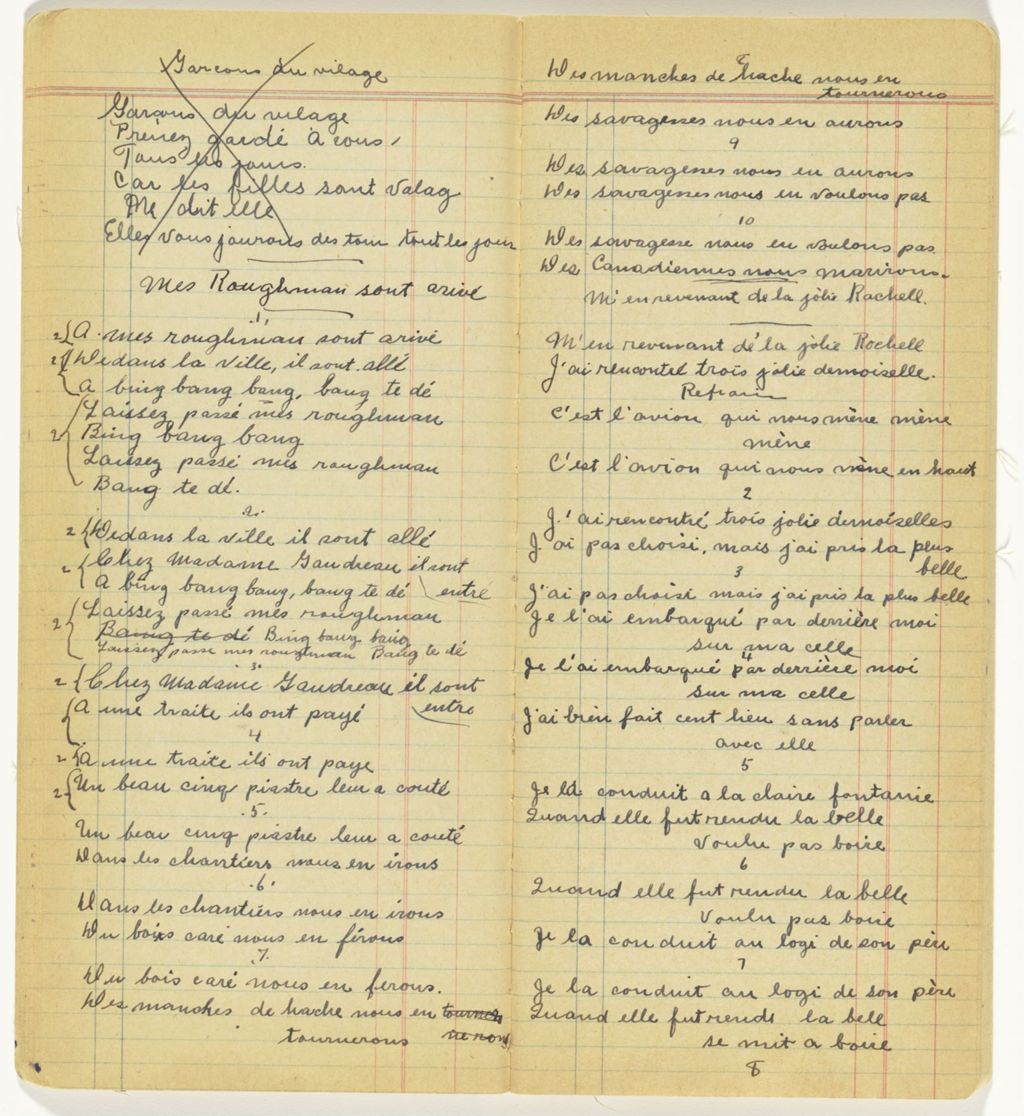 Garcons du vilage
Garçons du vilage
Prenez gardé à vous,
Tous les jours.
Car les filles sont valag
Me dit elle
Elles vous jourons des tour tout les jour
Mes Roughman sont arivé
1
2 { A mes roughman sont arivé
2 { Dedans la ville, il sont allé
A bing bang bang, bang te dé
2 { Laissez passé mes roughman
Bing bang bang
Laissez passé mes roughman
Bang te dé.
2.
2 { Dedans la ville il sont allé
2 { Chez Madame Gaudreau il sont
entré
A bing bang bang, bang te dé
2 { Laissez passé mes roughman
Bang te dé Bing bang bang
Laissez passe mes roughman Bang te dé
3
2 { Chez Madame Gaudreau il sont
entre
{ A une traite ils ont payé
4
2 { A une traite ils ont paye
2 { Un beau cinq piastre leur a couté
.5.
Un beau cinq piastre leur a couté
Dans les chantiers nous en irons
.6.
Dans les chantiers nous en irons
Du bois caré nous en férons
.7.
Du bois caré nous en ferons.
Des manches de hache nous en
tournerons
Des manches de hache nous en
tournerons
Des savagesses nous en aurons
9
Des savagesses nous en aurons
Des savagesses nous en voulons pas
10
Des savagesse nous en voulons pas
Des Canadiennes nous marirons.
M'en revenant de la jolie Rachell.
M'en revenant dé la jolie Rochell
J'ai rencontré trois jolie demoiselle.
Refrain
C'est l'avion qui nous mène mène
mène
C'est l'avion qui nous mène en haut
2
J'ai rencontré trois jolie demoiselles
J'ai pas choisi, mais j'ai pris la plus
belle
3
J'ai pas choisi mais j'ai pris la plus belle
Je l'ai embarqué par derrière moi
sur ma celle
4
Je l'ai embarqué par derrière moi
sur ma celle
J'ai bien fait cent lieu sans parler
avec elle
5
Je la conduit a la claire fontanie
Quand elle fut rendu la belle
Voulu pas boire
6
Quand elle fut rendu la belle
Voulu pas boire
Je la conduit au logi de son père
7
Je la conduit au logi de son père
Quand elle fut rendt la bell
se mit a boire
8